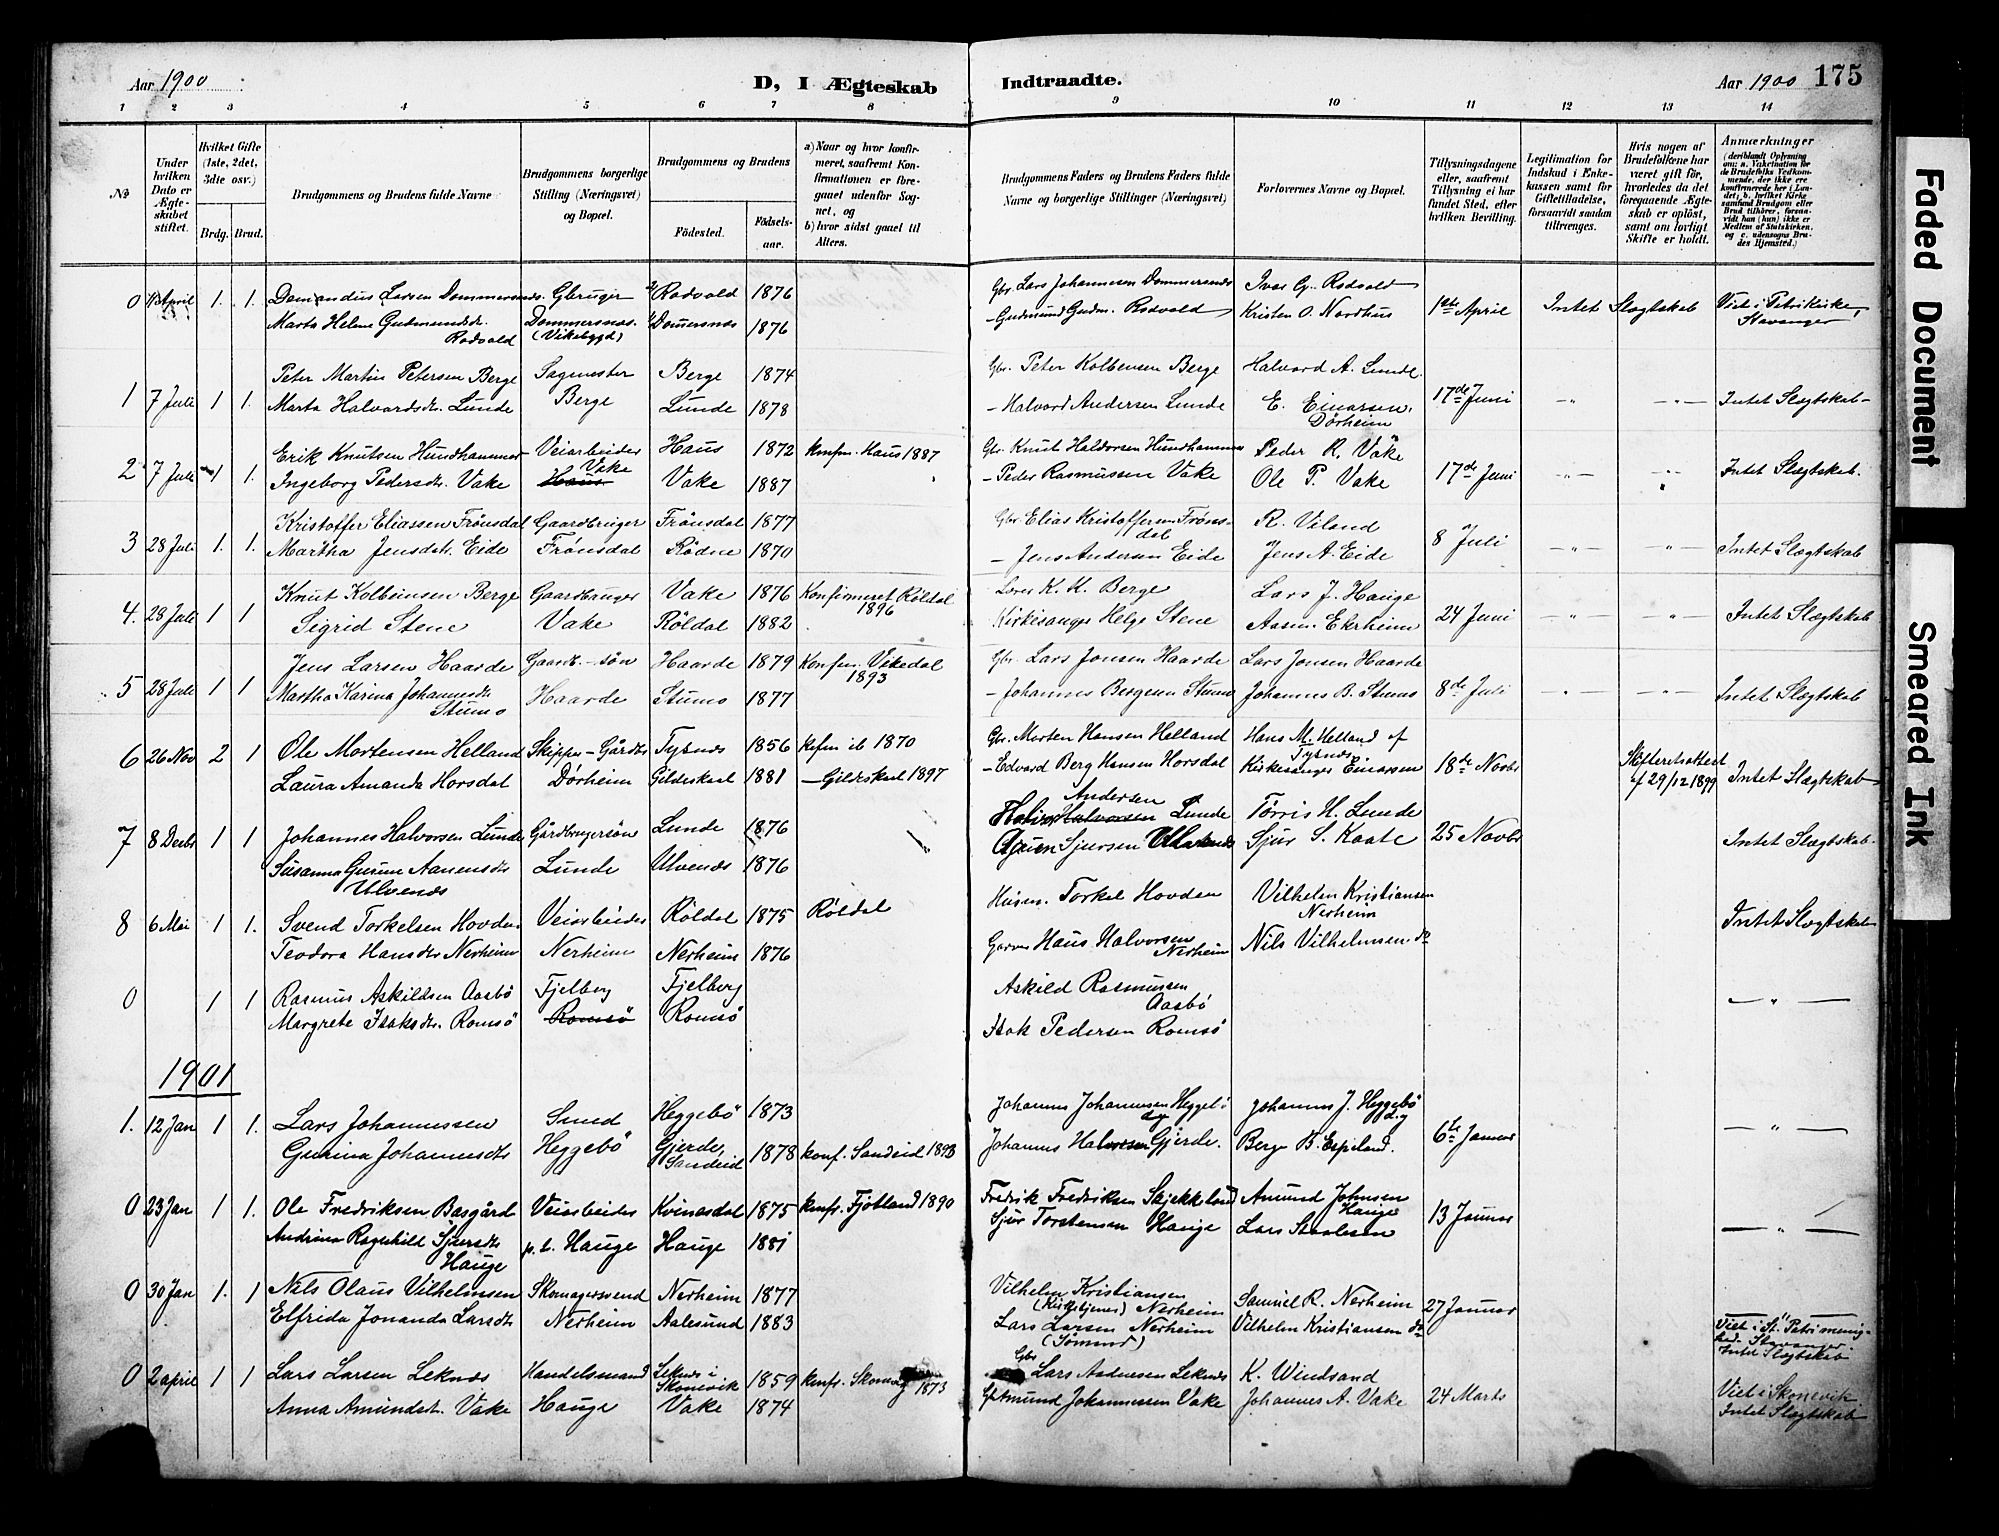 Aar 1900
D, I Ægteskab Indtraadte.
Aar 1900 175
1 2 3 4 5 6 7 8 9 10 11 12 13 14
№
Under hvilken Dato er Ægteskabet stiftet.
Hvilket Gifte (1ste, 2det, 3die osv.)
Brdg. Brud.
Brudgommens og Brudens fulde Navne
Brudgommens borgerlige Stilling (Næringsvei) og Bopæl.
Brudgommens og Brudens
Fødested. Fødselsaar.
a) Naar og hvor konfirmeret, saafremt Konfirmationen er foregaaet udenfor Sognet, og
b) hvor sidst gaaet til Alters.
Brudgommens Faders og Brudens Faders fulde Navne og borgerlige Stillinger (Næringsvei)
Forlovernes Navne og Bopæl.
Tillysningsdagene eller, saafremt Tillysning ei har fundet Sted, efter hvilken Bevilling.
Legitimation for Indskud i Enkekassen samt for Giftetilladelse, forsaavidt saadan tiltrænges.
Hvis nogen af Brudefolkene har været gift før, hvorledes da det foregaaende Ægteskab er opløst, samt om lovligt Skifte er holdt.
Anmærkninger
(deriblandt Oplysning om: a. Vakcination for de Brudefolks Vedkommende, der ikke ere konfirmerede her i Landet; b. hvilket Kirkesamfund Brudgom eller Brud tilhører, forsaavidt han (hun) ikke er Medlem af Statskirken, og c. udensogns Brudes Hjemsted.)
0 April 1. 1. Demandus Larsen Dommersnes. Gbruger Rodvold 1876 Gbr. Lars Johannesen Dommersnes Ivar G. Rodvold
Marta Helene Gudmundsdr. Rodvold Dommersnes. (Vikebygd) Domersnes 1876 Gudmund Gudm. Rodvold Kristen O. Nordhus 1ste April Intet Slægtskab Viet i Petrikirke, Stavanger
Peter Martin Petersen Berge Sagmester Berge 1874 Gbr. Peter Kolbensen Berge Halvard A. Lunde.
1 7 Juli 1 1. Marta Halvardsdr. Lunde Berge Lunde 1878 - Halvard Andersen Lunde E. Einarsen, Dørheim 17de Juni -"- -"- Intet Slægtskab-
Erik Knutsen Hundhammer Veiarbeider Haus 1872 konfm. Haus 1887 Gbr. Knut Haldorsen Hundhammer Peder R. Vake
2 7 Juli 1 1. Ingeborg Pedersdr. Vake Vake Haus Vake 1887 - Peder Rasmussen Vake Ole P. Vake 17de Juni -"- -"- Intet Slægtskab.
Kristoffer Eliassen Frønsdal Gaardbruger Frønsdal 1877 Gbr. Elias Kristoffersen Frønsdal R. Viland
3 28 Juli 1. 1. Martha Jensdatr. Eide Frønsdal Rødne 1870 - Jens Andersen Eide Jens A. Eide 8 Juli -"- -"- Intet Slægtskab
Knut Kolbeinsen Berge Gaardbruger Vake 1876 Konfirmeret Røldal 1896 K. K. Berge Lars J. Hauge
4. 28 Juli 1 1 Sigrid Stene Vake Røldal 1882 Kirkesanger Helge Stene Aasm. Ekrheim 24 Juni -"- -"- Intet Slægtskab
Jens Larsen Haarde Gaardb.-søn Haarde 1879 Konfm. Vikedal 1893 Gbr. Lars Jonsen Haarde Lars Jonsen Haarde
5 28 Juli 1 1 Martha Karina Johannesdtr Stumo Haarde Stumo 1877 - Johannes Bergesen Stumo Johannes B. Stumo 8de Juli -"- -"- Intet Slægtskab
6 26 Nov 2 1 Ole Mortensen Helland Skipper - Gårdbr Tysnes 1856 kofm ib 1870 Gbr. Morten Hansen Helland Hans M. Helland af Tysnes
Laura Amanda Horsdal Dørheim Gildeskaal 1881 - Gildeskaal 1897 - Edvard Berg Hansen Horsdal Kirkesanger Einarsen 18de Novbr Skifteretsattest af 29/12 1899 Intet Slægtskab-
7 8 Decbr 1 1 Johannes Halvorsen Lunde Gårdbrugersøn Lunde 1876 Andersen Lunde Tørris H. Lunde
Susanna Gurine Aanensdtr Ulvenes Lunde Ulvenes 1876 Sjursen Ulvenes Sjur S. Kaate 25 Novbr Intet Slægtskab.
8 6 Mai 1 1. Svend Torkelsen Hovden Veiarbeider Røldal 1875 Røldal Husm. Torkel Hovden Vilhelm Kristiansen Nerheim
Teodora Hansdtr Nerheim Nerheim Nerheim 1876 Garver Hans Halvorsen Nerheim Nils Vilhelmsen do Intet Slægtskab
0 1 1 Rasmus Askildsen Aasbø Fjelberg Fjelberg Askild Rasmussen Aasbø
Margrete Isaksdtr. Romsø Romsø Romsø Isak Pedersen Romsø - " -
1901
1. 12 Jan 1 1. Lars Johannessen Smed Heggebø 1873 Johannes Johannesen Heggebø Johannes J. Heggebø
Gurina Johannesdtr Heggebø Gjerde, Sandeid 1878 konf. Sandeid 1893 Johannes Halvorsen Gjerde. Berge B. Espeland. 6te Januar - " -
0 23 Jan 1 1. Ole Fredriksen Basgård Veiarbeider Kvinesdal 1875 konfr. Fjotland 1890 Fredrik Fredriksen Skjekkeland Amund Johnsen Hauge
Andrina Ragnhild Sjursdtr Hauge p. t. Hauge Hauge 1881 Sjur Torstensen Hauge Lars Staalesen 13 Januar - " -
0 30 Jan 1. 1 Nils Olaus Vilhelmsen Skomagersvend Nerheim 1877 Vilhelm Kristiansen (Kirketjener) Nerheim Samuel R. Nerheim 27 Januar
Elfrida Jonanda Larsdtr Nerheim Aalesund 1883 Lars Larsen Nerheim (Sømand) Vilhelm Kristiansen do Viet i St. Petri menighed. Stavanger Intet Slægtskab
0 2 april 1 1 Lars Larsen Leknes Handelsmand Leknes i Skonevik 1859 konfr. Skonevig 1873 Gbr Lars Aadnesen Leknes K. Windsand
Anna Amundsdt. Vake Hauge Vake 1874 Amund Johannessen Vake Johannes A. Vake 24 Marts Viet i Skonevik Intet Slægtskab
Faded Document
Smeared Ink